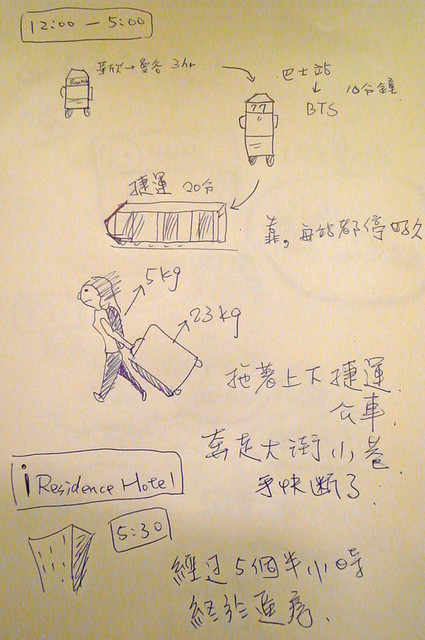 12:00 — 5:00
華欣→曼谷 3hr
巴士站
↓
BTS
10分鐘
77
捷運 20分
靠,每站都停好久
5kg
23kg
拖著上下捷運
公車
奔走大街小巷
手快斷了
i Residence Hotel
5:30
經過5個半小時
終於進房.